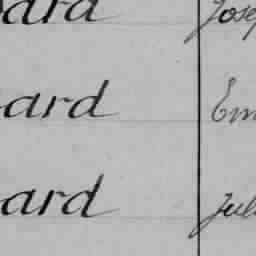 ard Jose
ard Em
ard Juli